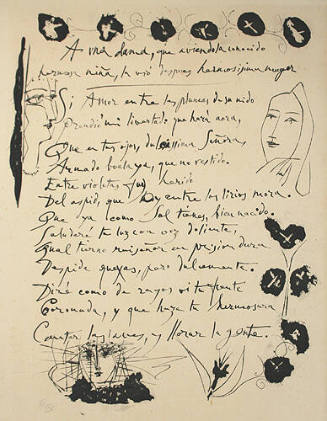 A una dama, que aviendola conocido
hermosa niña, la vió despues hermosissima muger
Si Amor entre las plumas de su nido
Prendió mi libertad que hara aora,
Que en tus ojos, dulcissima Señora,
Armado buela ya, que no vestido.
Entre violetas fui herido
Del aspid, que oy entre los lirios mora.
Que ya como Sol tienes, bien nacido.
Saludaré tu luz con voz doliente,
Qual tierno ruiseñor en prision dura
Despide quexas, pero dulcemente.
Diré como de rayos vi tu frente
Coronada, y que haze tu hermosura
Cantar las aves, y llorar la gente.